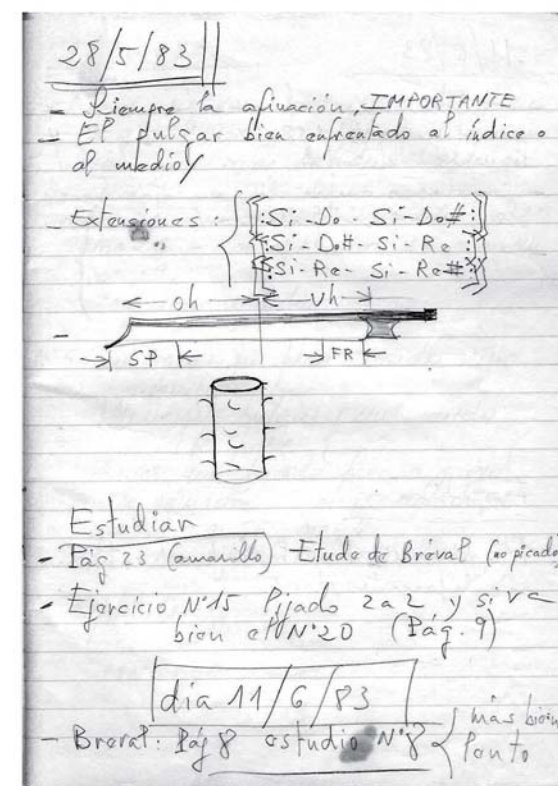 28/5/83
- Siempre la afinación, IMPORTANTE
- El pulgar bien enfrentado al índice o
al medio
- Extensiones: Si-Do - Si-Do#
Si-Do#- Si-Re
Si-Re- Si-Re#
oh Vh
SP FR
Estudiar
- Pág 23 (amarillo) Etude de Bréval (no picado)
- Ejercicio Nº15 Pijado 2 a 2 y si va
bien el Nº20 (Pág. 9)
día 11/6/83
- Breval: Pág 8 estudio Nº8 más bien
lento